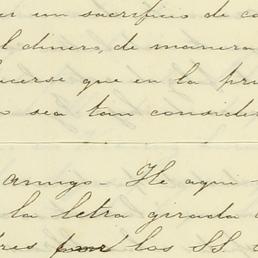 er un sacrificio de co
l dinero, de manera
cerse que en la pri
o sea tan conside
amigo - He aqui
la letra girada
res por los SS